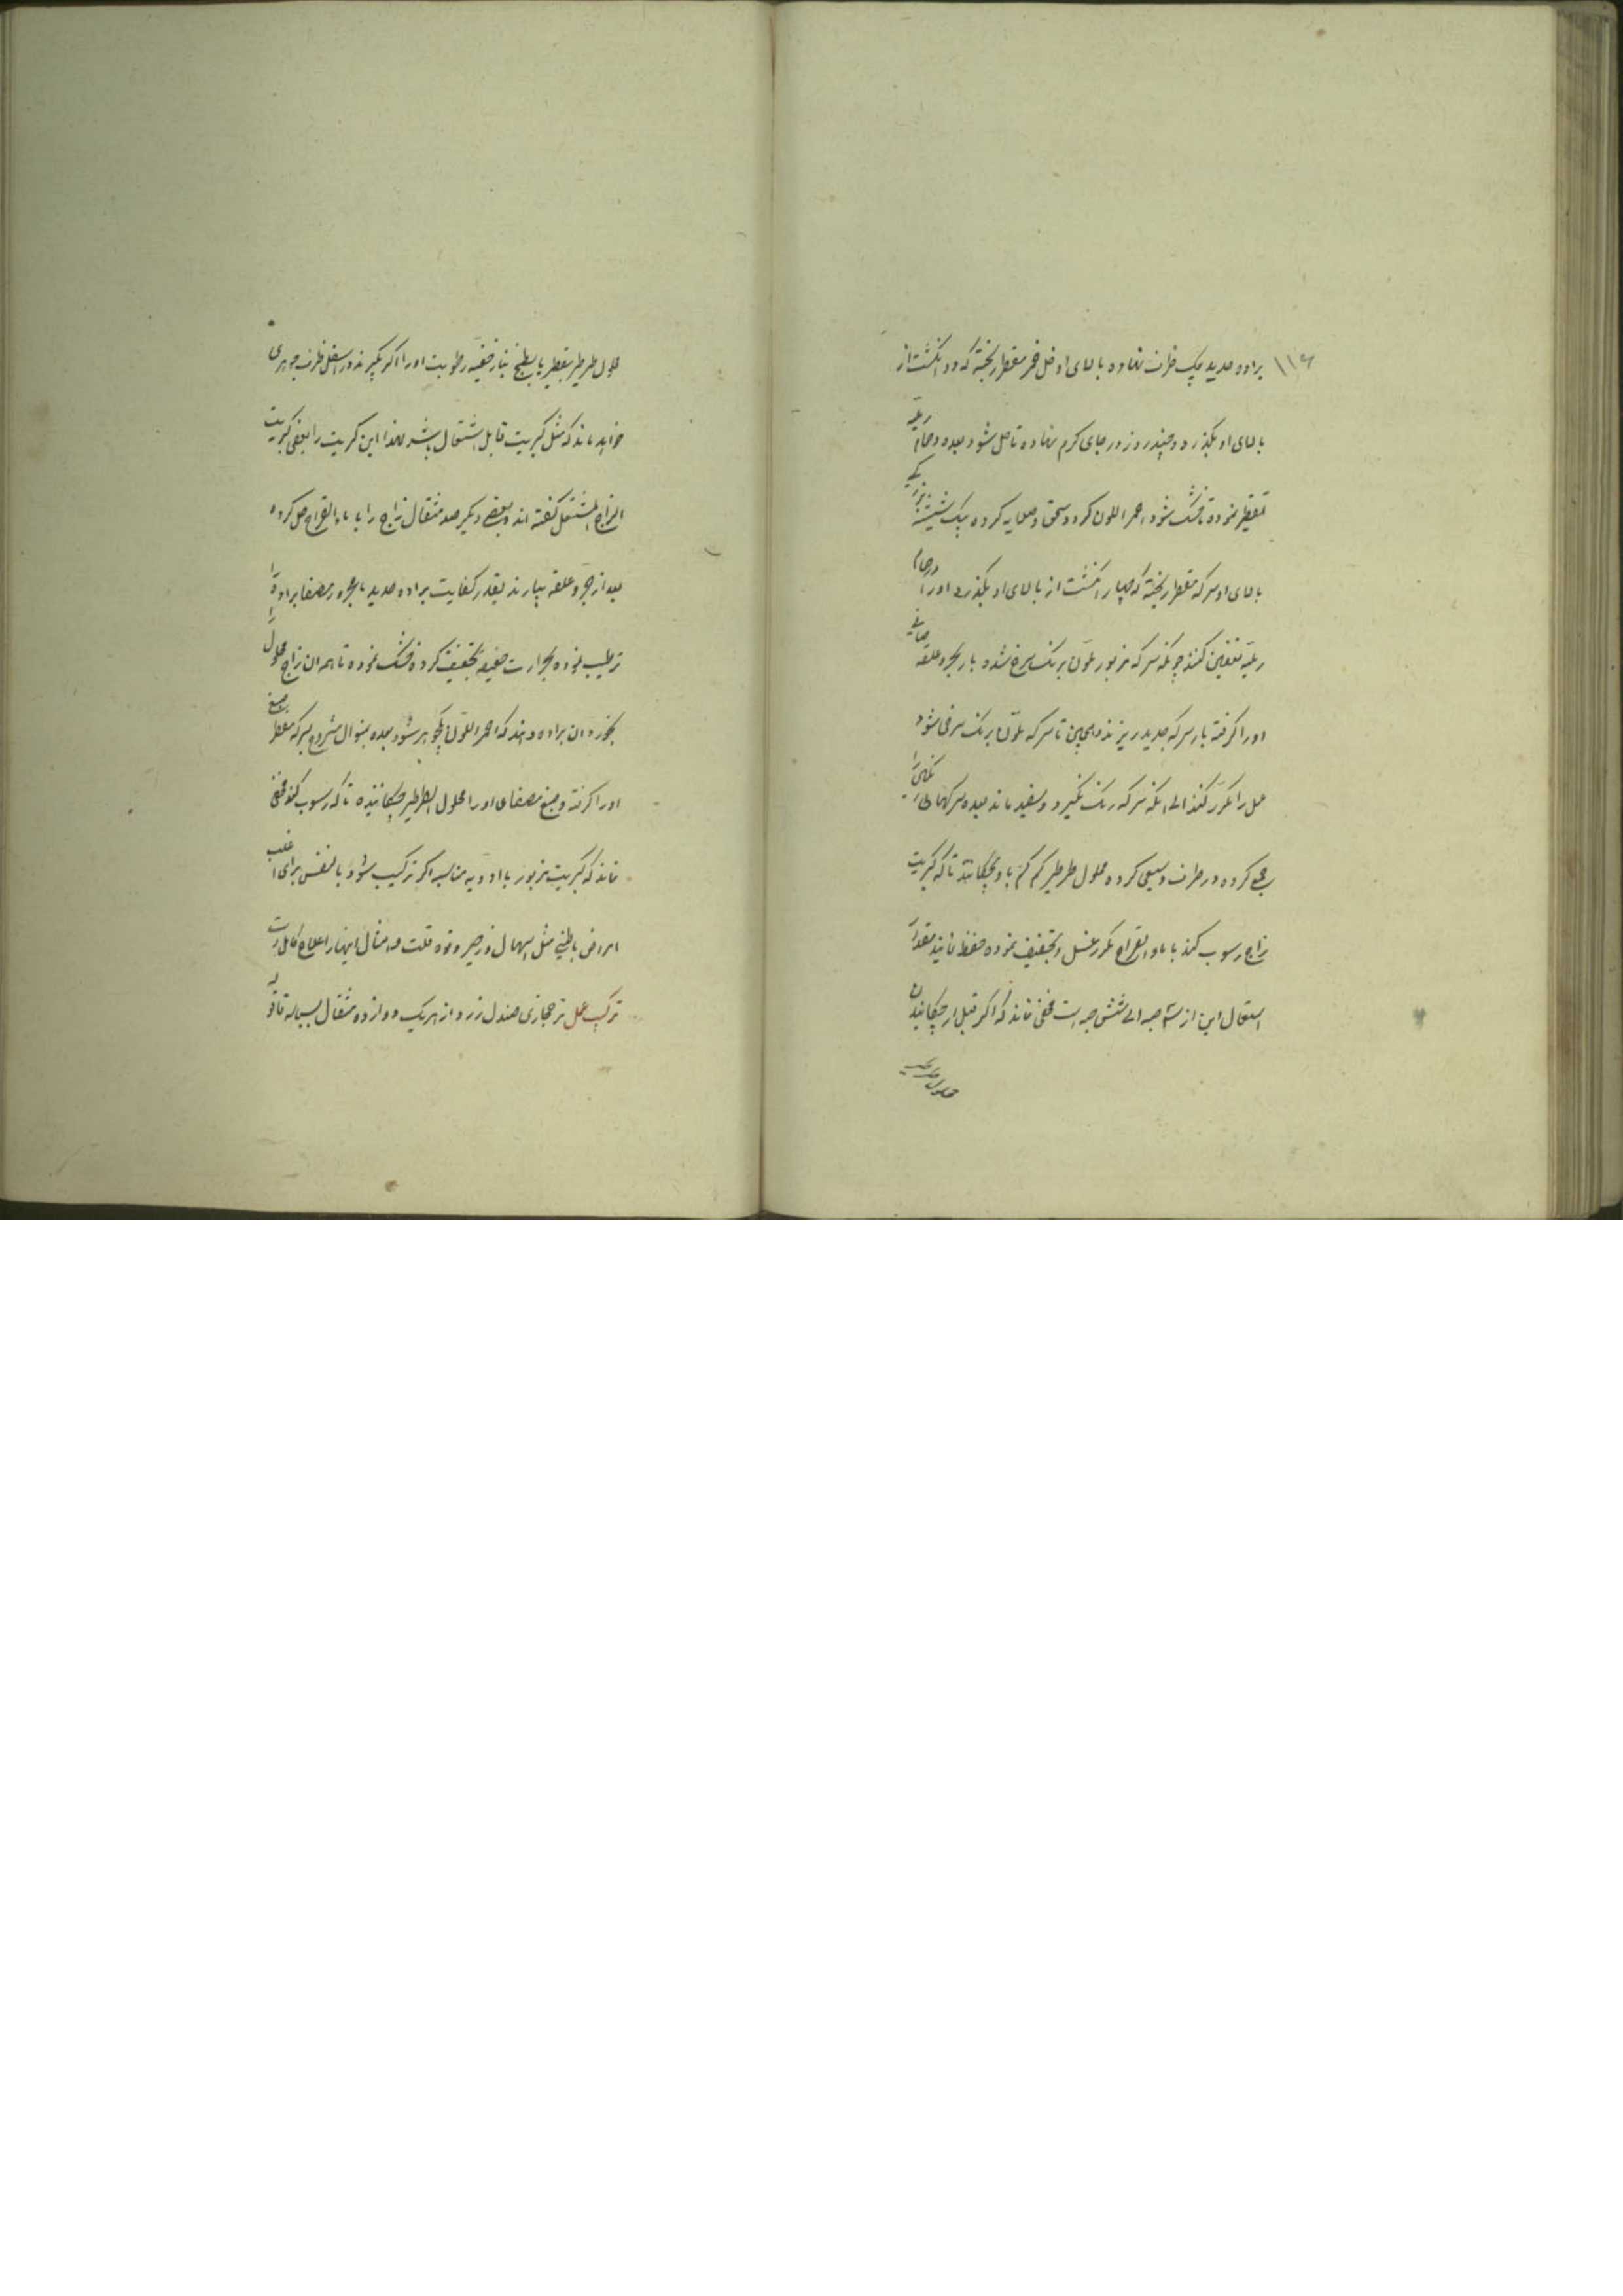 براده حدید بیک ظرف نهاده بالای او خل خمر مقطر ریخته که دو انکشت از
بالای او بکذرد و چند روز در جای کرم نهاده تا حل شود بعده در حمام رملیه
تقطیر نموده تا خشک شود احمر اللون کردد سحق و صلایه کرده بیک شیشه
بالای او سرکه مقطر ریخته که چهار انکشت از بالای او بکذرد او را در حمام
رملیه تعفین کنند چونکه سرکه مزبور ملون برنک سرخ شد بار بجر و علقه
اورا کرفته باز سرکه جدید ریزند و همچنین تا سرکه ملون برنک سرخی شود
عمل را مکرر کنند الی انکه سرکه رنک نکیرد و سفید ماند بعده سرکهای رنکین را
جمع کرده در ظرف وسیعی کرده محلول طرطیر کم کم باو بچکانند تا که کبریت
زاج رسوب کند با ماء القراح مکرر غسل و تجفیف نموده حفظ نمایند مقدار
استعمال این از سه حبه الی شش حبه است مخفی نماند که اکر قبل از چکانیدن
محلول طرطیر
محلول طرطیر بتقطیر یا بطبخ بنار خفیفه رطوبت اورا اکر بکیرند در اسفل ظرف جوهری
خواهد ماند که مثل کبریت قابل اشتعال باشد لهذا این کبریت را بعضی کبریت
الزاج المشتعل کفته اند و بعضی دیکر صد مثقال زاج را با ماء القراح حل کرده
بعد از جر و علقه بیارند بقدر کفایت براده حدید با بجر و مصفا براده را
ترطیب نموده بحرارت خفیفه تجفیف کرده خشک نموده تا همه ان زاج محلول را
بخورد ان براده دهند که احمر اللون یکجوهر شود بعده بمنوال مشروح بسرکه مقطر صبغ
اورا کرفته و صبغ مصفای اورا محلول الطرطیر چکانیده تا که رسوب کند مخفی
نماند که کبریت مزبور با ادویه مناسبه اکر ترکیب شود بالنفس برای اغلب
امراض باطنی مثل اسهال و زحیر و قوه قلت و امثال اینها را علاج کامل است
ترکیب عمل تر حجازی صندل زرد از هریک دوازده مثقال بسباسه قاقله